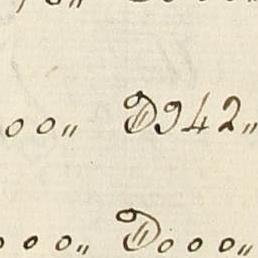 00„ D942„
000„ D000„